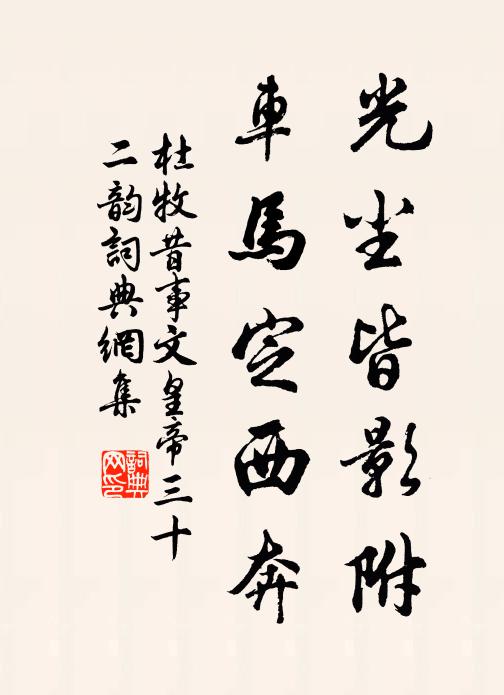 光尘皆影附
車馬定西奔
杜牧昔事文皇帝三十
二韵詞典網集
詞典
网印